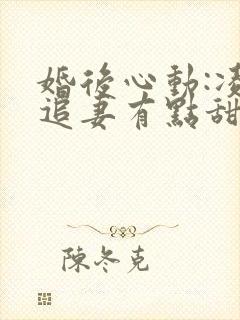 婚後心動:凌
追妻有點甜
陳冬克